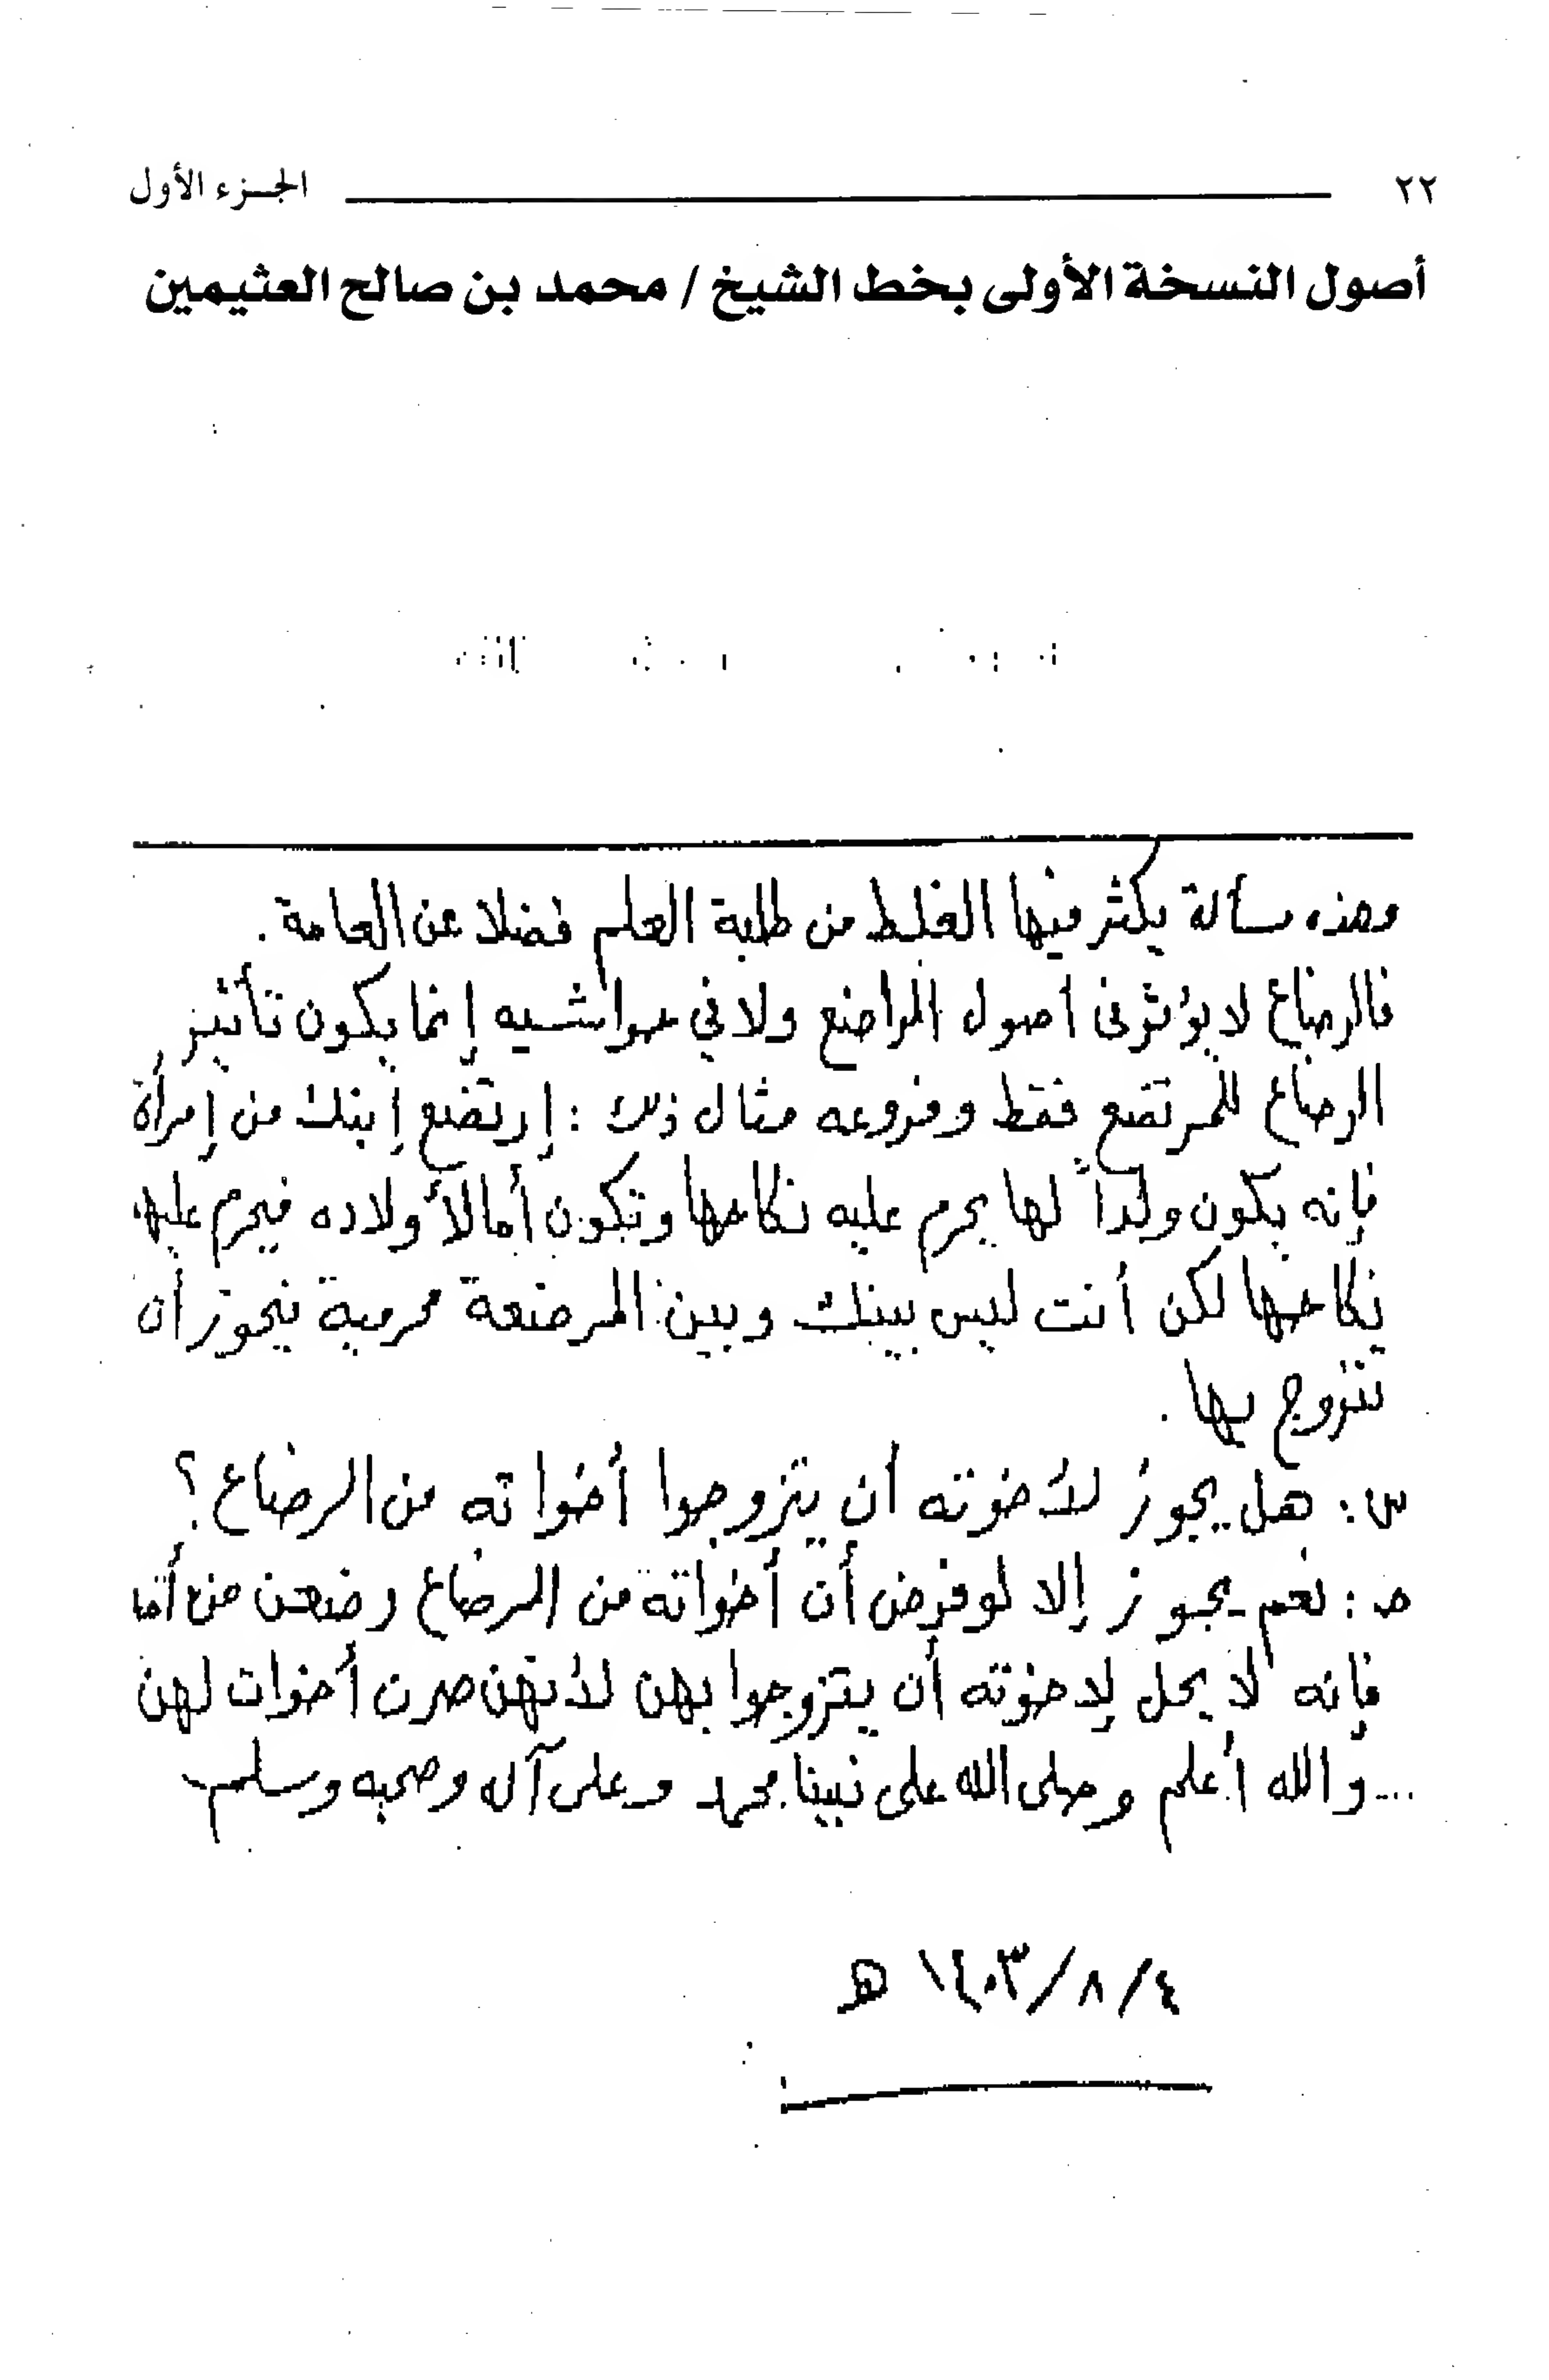 ٢٢ الجزء الأول
أصول النسخة الأولى بخط الشيخ / محمد بن صالح العثيمين
وهذه مسألة يكثر فيها الغلط من طلبة العلم فضلا عن العامة .
فالرضاع لا يؤثر في أصول المراضع ولا في حواشيه إنما يكون تأثير
الرضاع للمرتضع فقط وفروعه مثال ذلك : إرتضع إبنك من إمرأة
فإنه يكون ولداً لها يحرم عليه نكاحها وتكون أما لأولاده فيحرم عليها
نكاحها لكن أنت ليس بينك وبين المرضعة محرمية فيجوز أن
تتزوج بها .
س : هل يجوز لأخوته أن يتزوجوا أخواته من الرضاع ؟
جـ : نعم يجوز إلا لو فرض أن أخواته من الرضاع رضعن من
فإنه لا يحل لإخوته أن يتزوجوا بهن لأنهن صرن أخوات لهن
... والله أعلم وصلى الله على نبينا محمد وعلى آله وصحبه وسلم
٤ / ٨ / ١٤٠٣ هـ